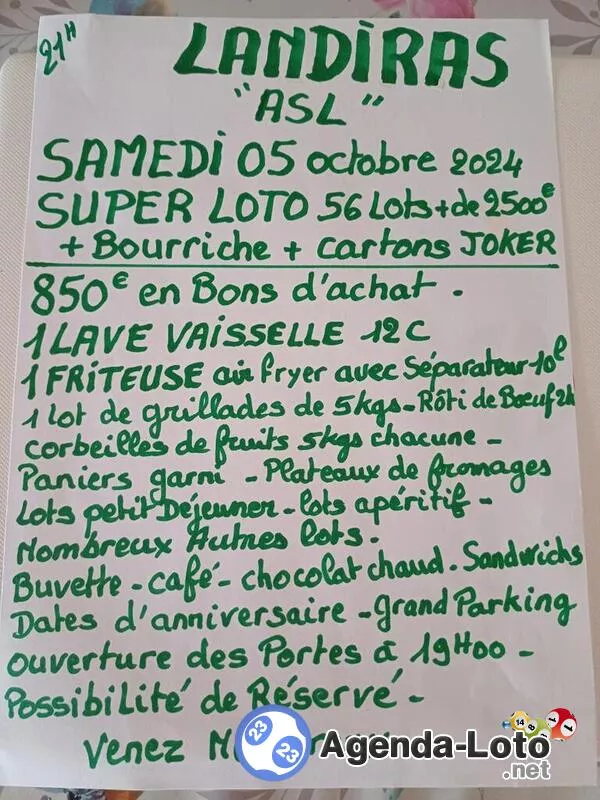 21H
LANDIRAS
"ASL"
SAMEDI 05 octobre 2024
SUPER LOTO 56 Lots + de 2500€
+ Bourriche + cartons JOKER
850€ en Bons d'achat.
1 LAVE VAISSELLE 12C
1 FRITEUSE air fryer avec Séparateur-10l
1 lot de grillades de 5kgs-Rôti de Bœuf 2k
corbeilles de fruits 5kgs chacune -
Paniers garni - Plateaux de fromages
Lots petit Déjeuner - lots apéritif -
Nombreux Autres lots.
Buvette - café - chocolat chaud. Sandwichs
Dates d'anniversaire - grand Parking
ouverture des Portes à 19H00 -
Possibilité de Réservé -
Venez
23
23
Agenda-Loto
.net
14
8
1
1